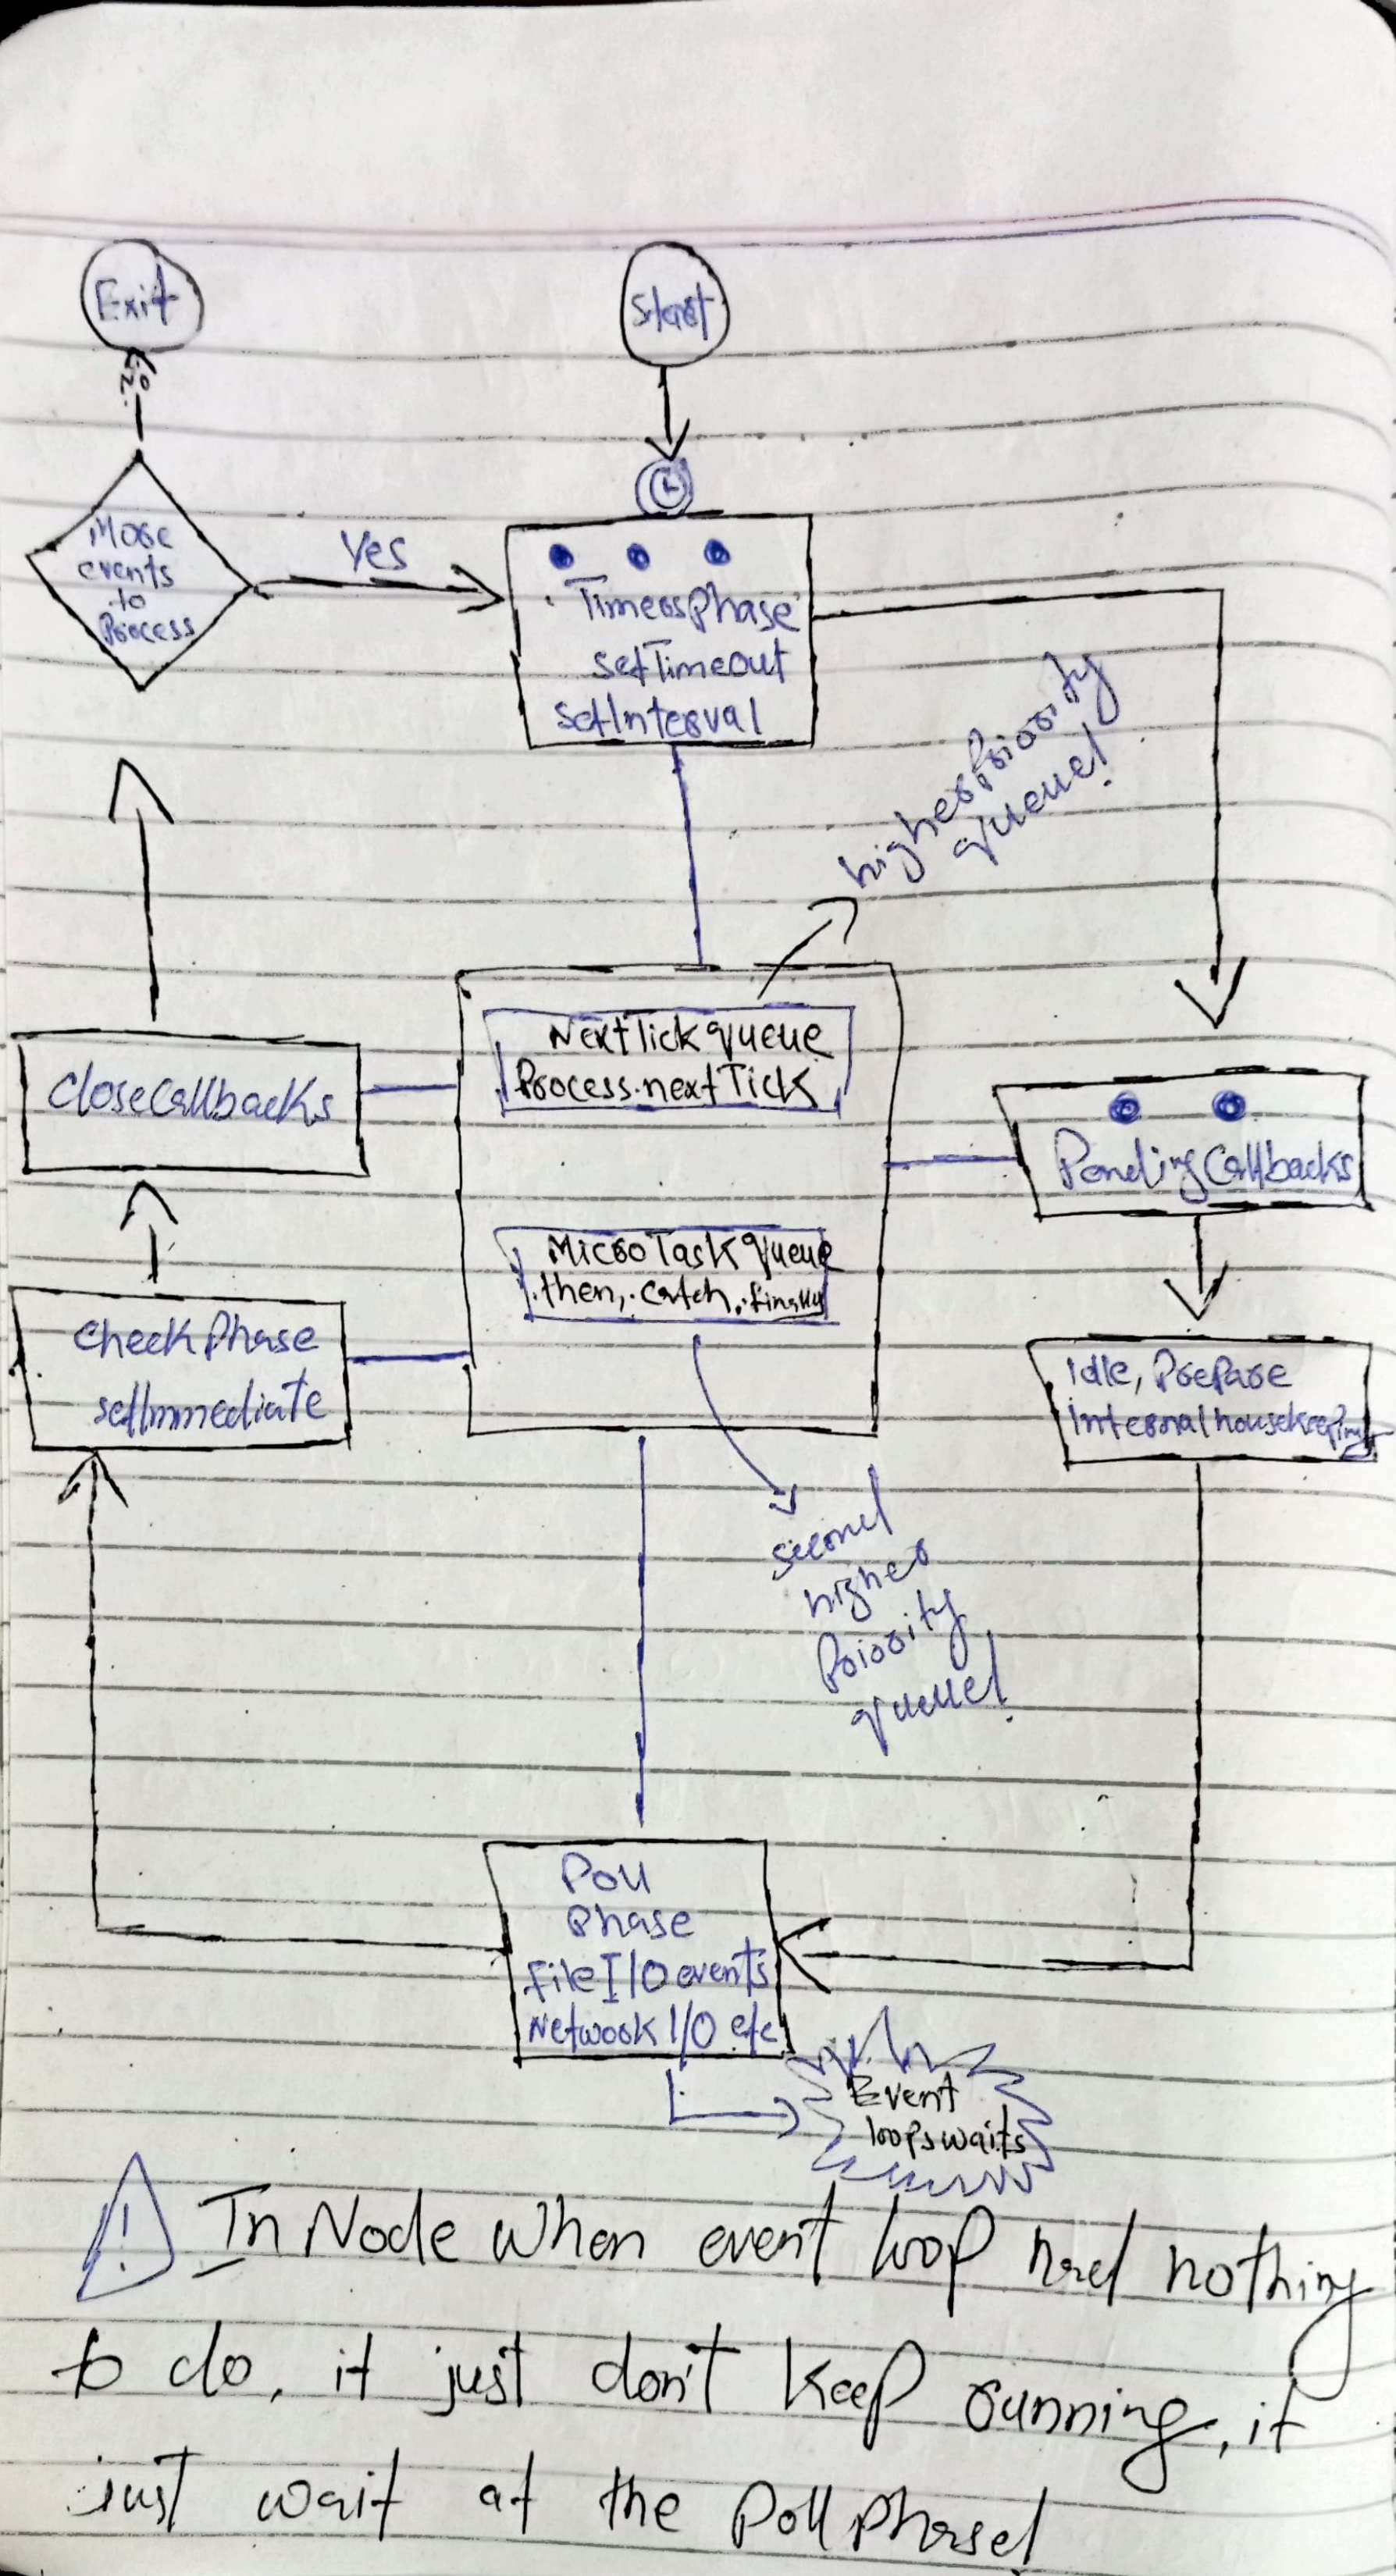 Exit
Start
No
More
events
to
Process
Yes
TimersPhase
setTimeout
setInterval
higher Priority
queue!
NextTick queue
Process.nextTick
closeCallbacks
Pending Callbacks
MicroTask queue
.then, .catch, .finally
check Phase
setImmediate
Idle, Prepare
Internal housekeeping
second
higher
Priority
queue!
Poll
Phase
file I/O events
Network I/O etc
Event
loops waits
! In Node when event loop had nothing
to do, it just don't keep running, it
just wait at the Poll phase!